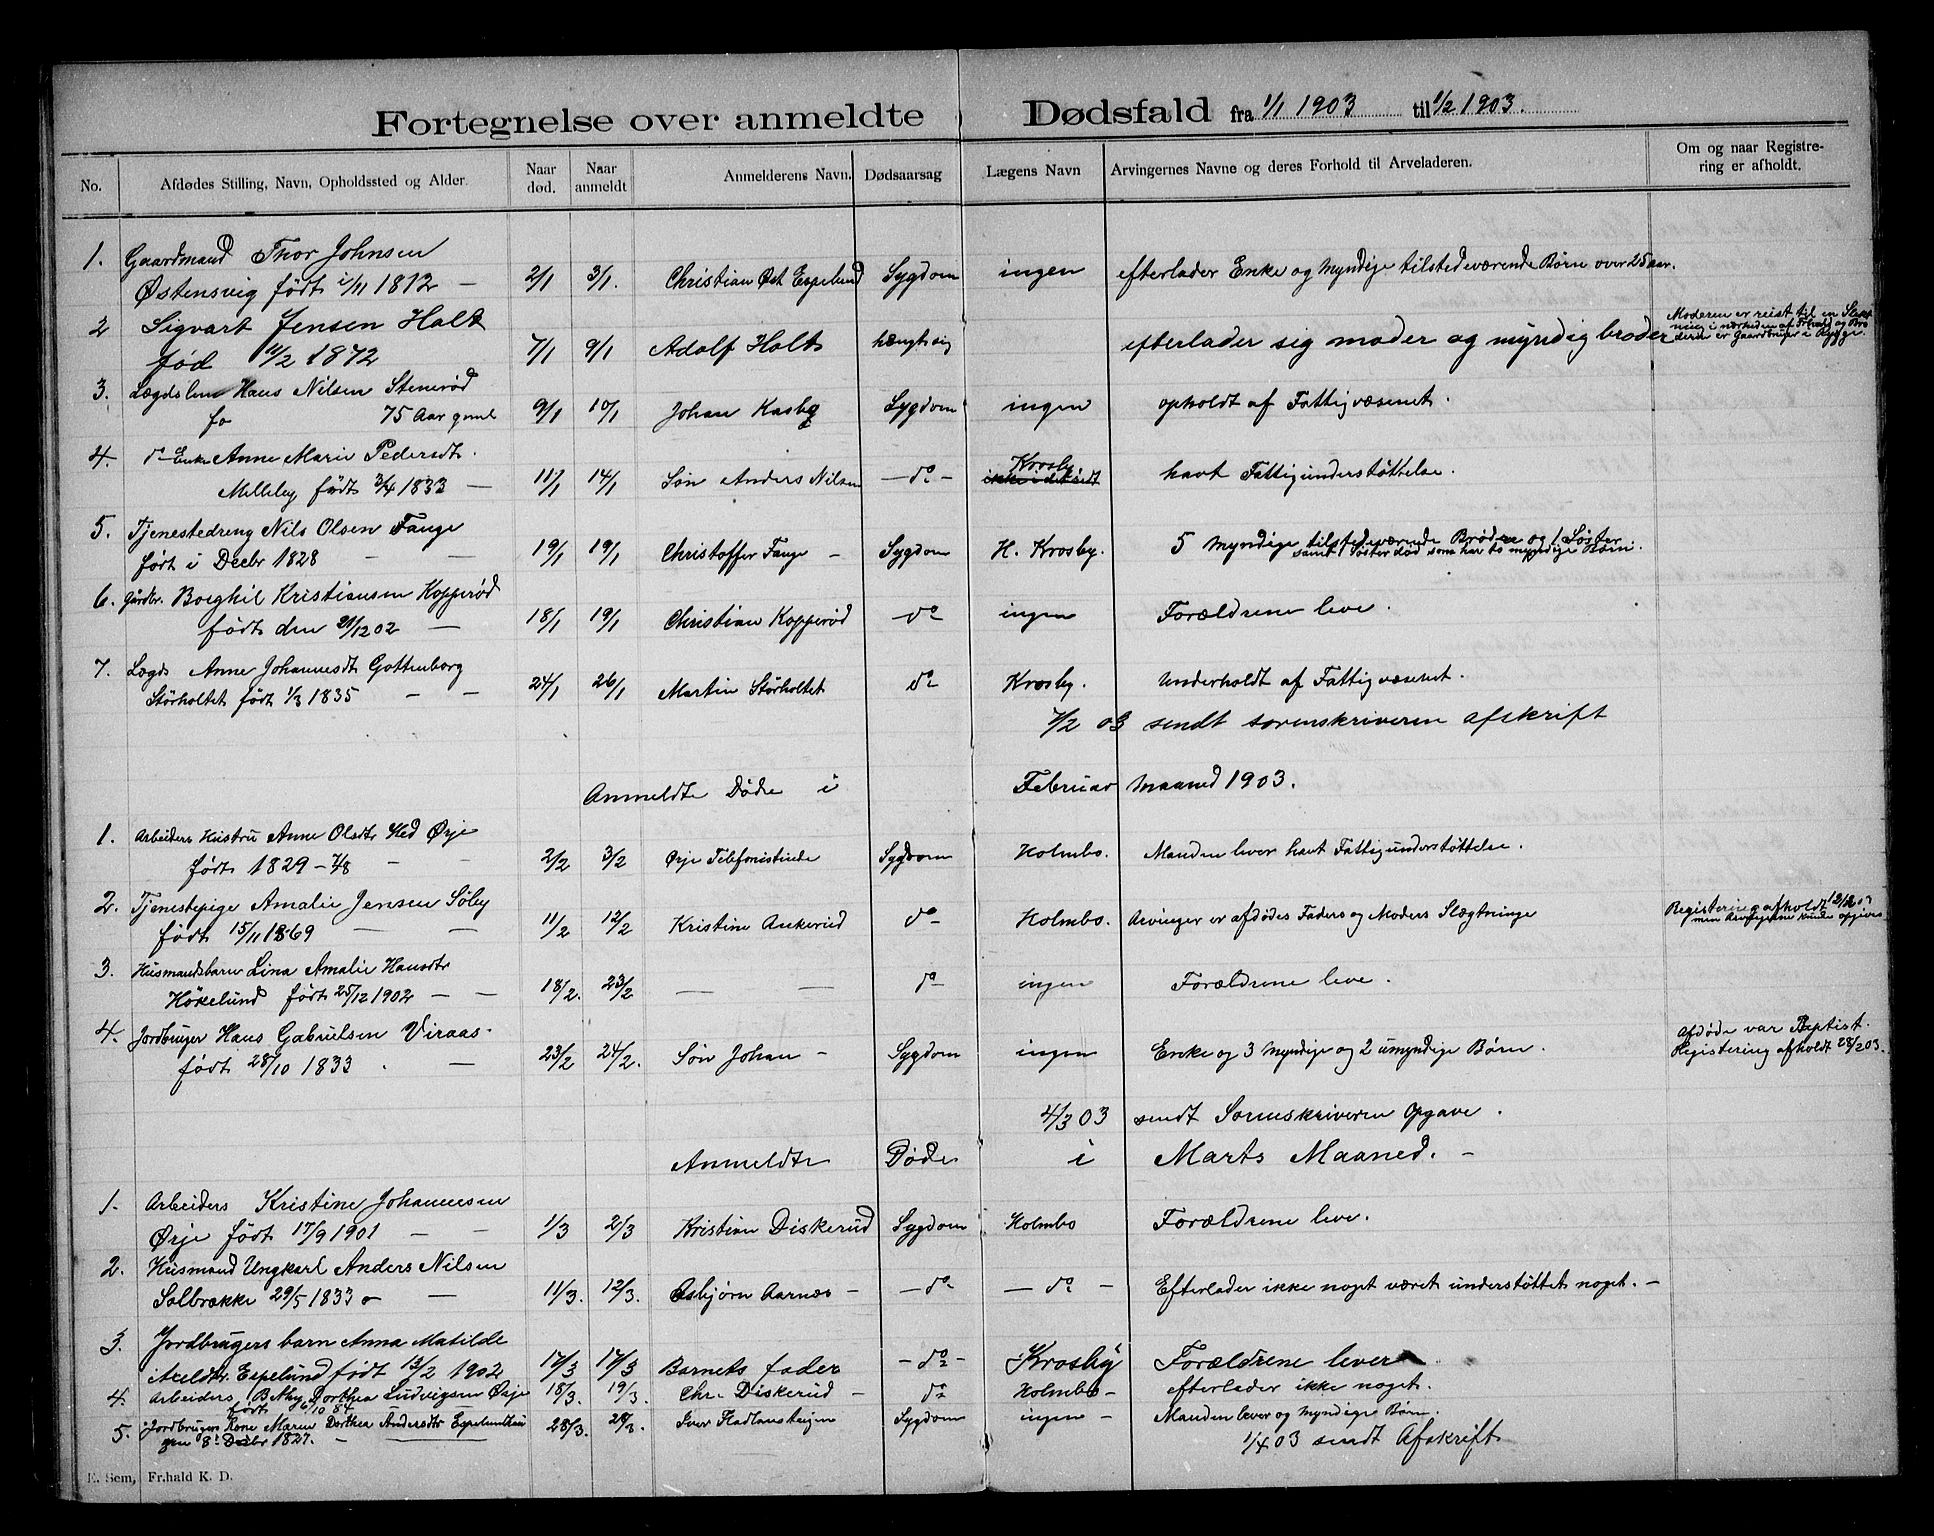 Fortegnelse over anmeldte Dødsfald fra 1/1 1903 til 1/2 1903.
No. Afdødes Stilling, Navn, Opholdssted og Alder. Naar død. Naar anmeldt Anmelderens Navn. Dødsaarsag Lægens Navn Arvingernes Navne og deres Forhold til Arveladeren. Om og naar Registrering er afholdt.
1. Gaardmand Thor Johnsen
Østensvig født 1/11 1812 — 2/1 3/1. Christian Øst Espelund Sygdom ingen efterlader Enke og Myndije tilstedeværende Børn over 25 aar.
2 Sigvart Jensen Holt
fød 11/2 1872 7/1 9/1 Adolf Holt hængt sig efterlader sig moder og myndig broder
Moderen er reist til en Slægtning i nærheden af og Broderen er Gaardbruger i Rygge.
3. Lægdslem Hans Nilsen Stenerød
75 Aar gml 9/1 10/1 Johan Kasby Sygdom ingen opholdt af Fattigvæsenet.
4. do Enke Anne Marie Pedersdt.
Melleby født 3/4 1833 — 11/1 14/1 Søn Anders Nilsen — do — Krosby havt Fattigunderstøttelse.
5. Tjenestedreng Nils Olsen Fange
født i Decbr 1828 — — 19/1 19/1 Christoffer Fange — Sygdom H. Krosby. 5 Myndige tilstedeværende Brødre og 1 Søster
samt 1 Søster død som har to myndige Børn.
6. Gårdbr. Borghil Kristiansen Kopperød
født den 21/12 02 — 18/1 19/1 Christian Kopperød do ingen Forældrene leve.
7. Lægds Anne Johannesdt Gottenborg
Störholtet født 1/3 1835 — — 24/1 26/1 Martin Störholtet do Krosby. Underholdt af Fattigvæsenet.
7/2 03 sendt sorenskriveren afskrift
Anmeldte Døde i Februar Maaned 1903.
1. Arbeiders Hustru Anne Olsdtr Hed Ørje
født 1829 - 7/8 — — 2/2 3/2 Ørje Telefonistinde Sygdom Holmbo. Manden lever havt Fattigunderstøttelse.
2. Tjenestepige Amalie Jensen Söby
født 15/11 1869 — — 11/2 12/2 Kristine Ankerud do Holmbo. Arvinger er afdødes Faders og Moders Slægtninge
Registering afholdt 12/12 03 men Arvingerne kunde opgives
3. Husmandsbarn Lina Amalie Hansdtr
Hökelund født 25/12 1902 — — 18/2. 23/2 — — do ingen Forældrene leve.
4. Jordbruger Hans Gabrielsen Viraas.
født 28/10 1833 . — 23/2 24/2. Søn Johan — Sygdom ingen Enke og 3 Myndije og 2 umyndige Børn.
Afdøde var Baptist.
Registering afholdt 28/2 03.
4/3 03 sendt Sorenskriveren Opgave.
Anmeldte Døde i Marts Maaned. —
1. Arbeiders Kristine Johannesen
Ørje født 17/9 1901 — — 1/3 2/3 Kristian Diskerud Sygdom Holmbo Forældrene leve.
2. Husmand Ungkarl Anders Nilsen
Solbrække 29/5 1833 — 11/3. 12/3. Asbjørn Aarnæs — — do — — do — Efterlader ikke noget været understøttet noget. —
3. Jordbrugers barn Anna Matilde
Axeldtr. Espelund født 13/2 1902 17/3 17/3 Barnets fader — do — Krosby Forældrene lever
4. Arbeiders Bethy Dorthea Ludvigsen Ørje
født 6/10 84 18/3. 19/3. Chr. Diskerud — do Holmbo — efterlader ikke noget.
5. Jordbruger Kone Maren Dorthea Andersdtr Espelund
8. Decbr 1827. — 28/3. 28/3. Iver Sygdom ingen — Manden lever og Myndige Børn.
1/4 03 sendt Afskrift
E. Sem, Fr.hald K. D.